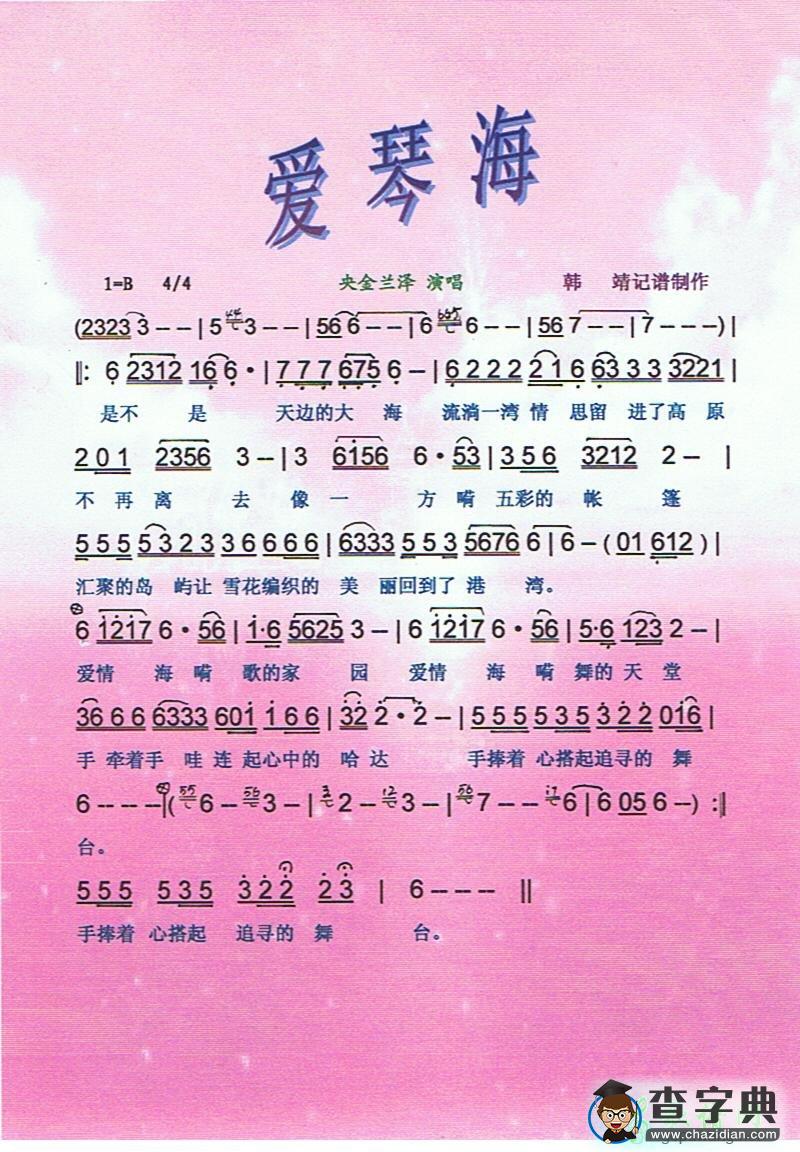 爱琴海
1=B 4/4 央金兰泽 演唱 韩 靖记谱制作
(2323 3 - - | 5 3 - - | 56 6 - - | 6 6 - - | 56 7 - - | 7 - - -) |
‖: 6 2312 16 6 · | 7 7 7 675 6 - | 6 2 2 2 2 1 6 63 3 3 3221 |
是不 是 天边的大 海 流淌一湾 情 思留 进了高 原
2 0 1 2356 3 - - | 3 6156 6 · 53 | 3 5 6 3212 2 - - |
不 再 离 去 像 一 方 嗬 五彩的 帐 篷
5 5 5 5 3 2 3 3 6 6 6 6 | 6333 5 5 3 5676 6 | 6 - ( 01 612 ) |
汇聚的岛 屿让 雪花编织的 美 丽回到了 港 湾。
6 1217 6 · 56 | 1·6 5625 3 - | 6 1217 6 · 56 | 5·6 123 2 - |
爱情 海 嗬 歌的家 园 爱情 海 嗬 舞的 天 堂
36 6 6 6333 601 1 6 6 | 32 2 · 2 - | 5 5 5 5 3 5 3 2 2 016 |
手 牵着手 哇 连 起心中的 哈 达 手捧着 心搭起追寻的 舞
6 - - - | ( 6 - - 3 - | 2 - - 3 - | 7 - - 6 | 6 05 6 - ) :‖
台。
5 5 5 5 3 5 3 2 2 2 3 | 6 - - - ‖
手捧着 心搭起 追寻的 舞 台。
查字典
www.chazidian.com